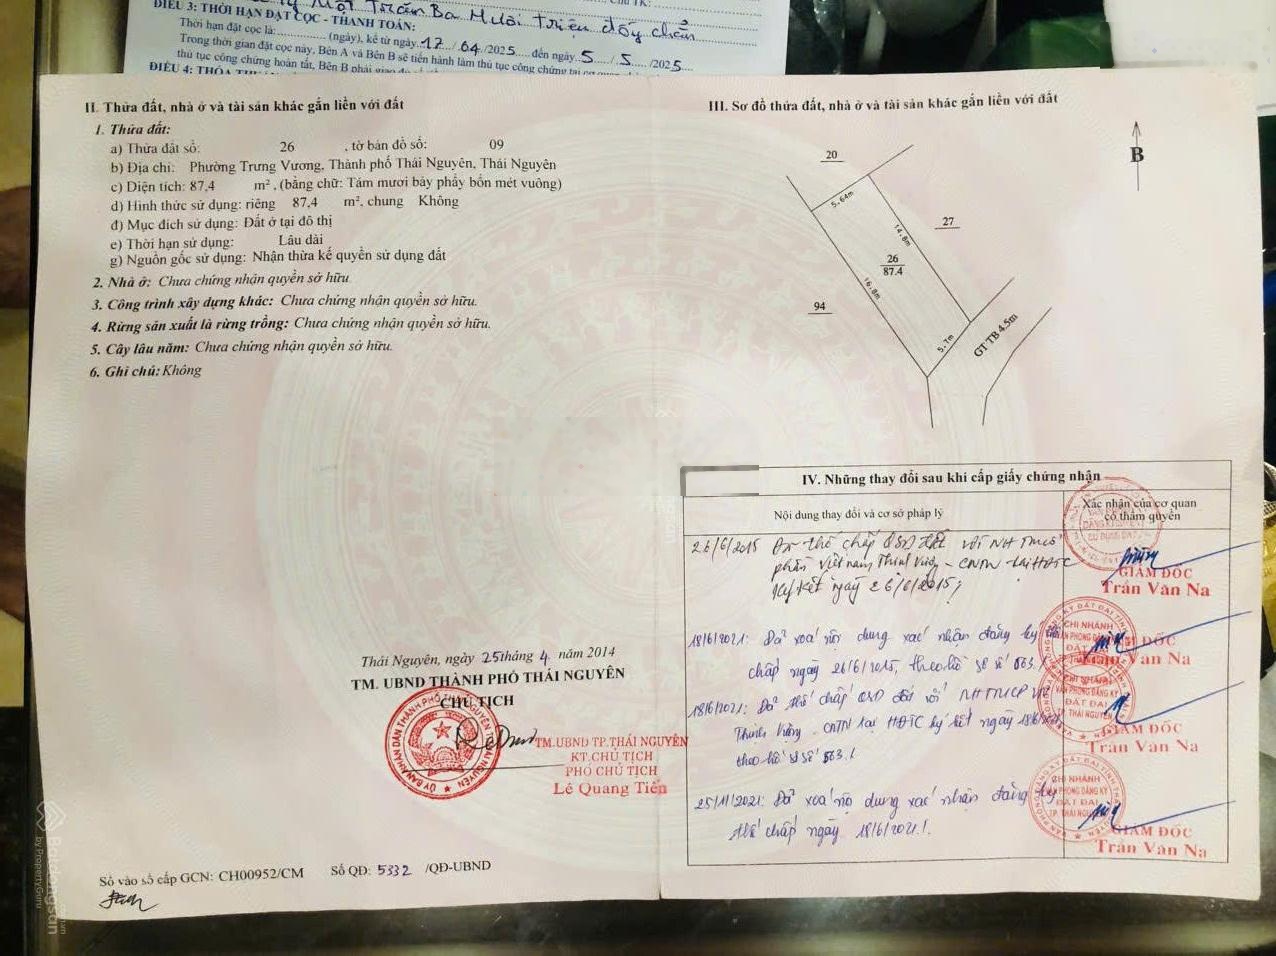 Một Trăm Ba Mươi Triệu đồng chẵn
ĐIỀU 3: THỜI HẠN ĐẶT CỌC - THANH TOÁN:
Thời hạn đặt cọc là: (ngày), kể từ ngày 17/04/2025 đến ngày 5/5/2025
Trong thời gian đặt cọc này, Bên A và Bên B sẽ tiến hành làm thủ tục công chứng tại cơ quan
thủ tục công chứng hoàn tất, Bên B phải giao đủ số
ĐIỀU 4: THỎA
II. Thửa đất, nhà ở và tài sản khác gắn liền với đất
1. Thửa đất:
a) Thửa đất số: 26 , tờ bản đồ số: 09
b) Địa chỉ: Phường Trưng Vương, Thành phố Thái Nguyên, Thái Nguyên
c) Diện tích: 87,4 m², (bằng chữ: Tám mươi bảy phẩy bốn mét vuông)
d) Hình thức sử dụng: riêng 87,4 m², chung Không
đ) Mục đích sử dụng: Đất ở tại đô thị
e) Thời hạn sử dụng: Lâu dài
g) Nguồn gốc sử dụng: Nhận thừa kế quyền sử dụng đất
2. Nhà ở: Chưa chứng nhận quyền sở hữu.
3. Công trình xây dựng khác: Chưa chứng nhận quyền sở hữu.
4. Rừng sản xuất là rừng trồng: Chưa chứng nhận quyền sở hữu.
5. Cây lâu năm: Chưa chứng nhận quyền sở hữu.
6. Ghi chú: Không
Thái Nguyên, ngày 25 tháng 4 năm 2014
TM. UBND THÀNH PHỐ THÁI NGUYÊN
CHỦ TỊCH
TM.UBND TP.THÁI NGUYÊN
KT.CHỦ TỊCH
PHÓ CHỦ TỊCH
Lê Quang Tiến
Số vào sổ cấp GCN: CH00952/CM Số QĐ: 5332 /QĐ-UBND
III. Sơ đồ thửa đất, nhà ở và tài sản khác gắn liền với đất
B
20
5.64m
27
14.8m
26
87.4
16.8m
94
5.7m
GT TB 4.5m
IV. Những thay đổi sau khi cấp giấy chứng nhận
Nội dung thay đổi và cơ sở pháp lý
Xác nhận của cơ quan
có thẩm quyền
26/6/2015 Đã thế chấp QSD đất với NH TMCổ
phần Việt Nam Thịnh Vượng - CNTN tại HĐTC
ký kết ngày 26/6/2015;
GIÁM ĐỐC
Trần Văn Na
18/6/2021: Đã xoá nội dung xác nhận đăng ký thế
chấp ngày 26/6/2015, theo hồ sơ số 563./.
CHI NHÁNH
VĂN PHÒNG ĐĂNG KÝ
ĐẤT ĐAI
GIÁM ĐỐC
Trần Văn Na
18/6/2021: Đã thế chấp QSD đất với NH TMCP VN
Thịnh Vượng - CNTN tại HĐTC ký kết ngày 18/6/2021
theo hồ sơ số 563./.
CHI NHÁNH
VĂN PHÒNG ĐĂNG KÝ
ĐẤT ĐAI
TP. THÁI NGUYÊN
GIÁM ĐỐC
Trần Văn Na
25/11/2021: Đã xoá nội dung xác nhận đăng ký
thế chấp ngày 18/6/2021./.
CHI NHÁNH
VĂN PHÒNG ĐĂNG KÝ
ĐẤT ĐAI
TP. THÁI NGUYÊN
GIÁM ĐỐC
Trần Văn Na
Batdongsan
by PropertyGuru